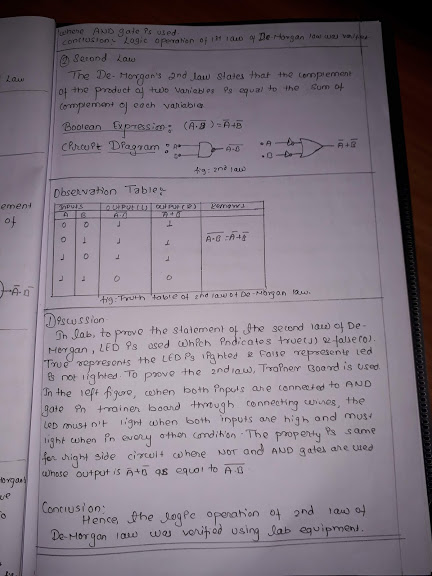 where AND gate is used.
conclusion: Logic operation of 1st law of De Morgan law was verified
② Second Law
The De-Morgan's 2nd law states that the complement
of the product of two variables is equal to the sum of
complement of each variable.
Boolean Expression: (A̅·̅B̅) = A̅+B̅
Circuit Diagram: A B A̅·̅B̅ A B A̅+B̅
fig: 2nd law
Observation Table:
INPUTS OUTPUT(1) OUTPUT(2) Remarks
A B A̅·̅B̅ A̅+B̅
0 0 1 1
0 1 1 1 A̅·̅B̅=A̅+B̅
1 0 1 1
1 1 0 0
fig: Truth table of 2nd law of De-Morgan law.
Discussion:
In lab, to prove the statement of the second law of De-
Morgan, LED is used which indicates true(1) & false(0).
True represents the LED is lighted & False represents led
is not lighted. To prove the 2nd law, Trainer Board is used.
In the left figure, when both inputs are connected to AND
gate in trainer board through connecting wires, the
LED must n't light when both inputs are high and must
light when in every other condition. The property is same
for right side circuit where NOT and AND gates are used
whose output is A̅+B̅ as equal to A̅·̅B̅
Conclusion:
Hence, the logic operation of 2nd law of
De-Morgan law was verified using lab equipment.
Law
ement
of
A̅·̅B̅